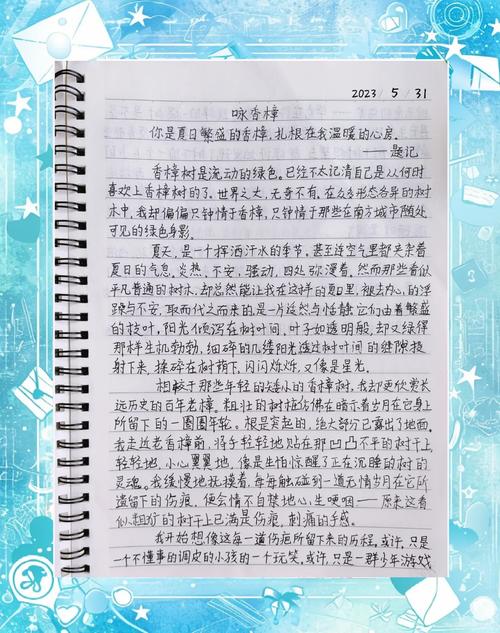 2023 / 5 / 31
咏香樟
你是夏日繁盛的香樟，扎根在我温暖的心房。
——题记
香樟树是流动的绿色。已经不太记清自己是从何时
喜欢上香樟树的了。世界之大，无奇不有。在众多形态各异的树
木中，我却偏偏只钟情于香樟，只钟情于那些在南方城市随处
可见的绿色身影。
夏天，是一个挥洒汗水的季节，甚至连空气里都夹杂着
夏日的气息，炎热、不安、骚动，四处弥漫着，然而那些看似
平凡普通的树木，却总然能让我在这样的夏日里，褪去内心的浮
躁与不安，取而代之而来的是一片淡然与恬静。它们由着繁盛
的枝叶，阳光倾泻在树叶间，叶子如透明般，却又绿得
那样生机勃勃，细碎的几缕阳光透过树叶间的缝隙投
射下来，揉碎在树荫下，闪闪烁烁，又像是星光。
相较于那些年轻的矮小的香樟树，我却更欣赏长
远历史的百年老樟。粗壮的树桩仿佛在暗示着岁月在它身上
所留下的一圈圈年轮。根是突起的，绝大部分已露出了地面。
我走近老香樟前，将手轻轻地贴在那凹凸不平的树干上，
轻轻地，小心翼翼地，像是生怕惊醒了正在沉睡的树的
灵魂。我缓慢地抚摸着，每每触碰到一道无情岁月在它所
遗留下的伤痕，便会情不自禁地心生哽咽——原来这看
似粗犷的树干上已满是伤痕，刺痛的手感。
我开始想像这每一道伤疤所留下来的历程，或许，只是
一个不懂事的调皮的小孩的一个玩笑，或许，只是一群少年游戏